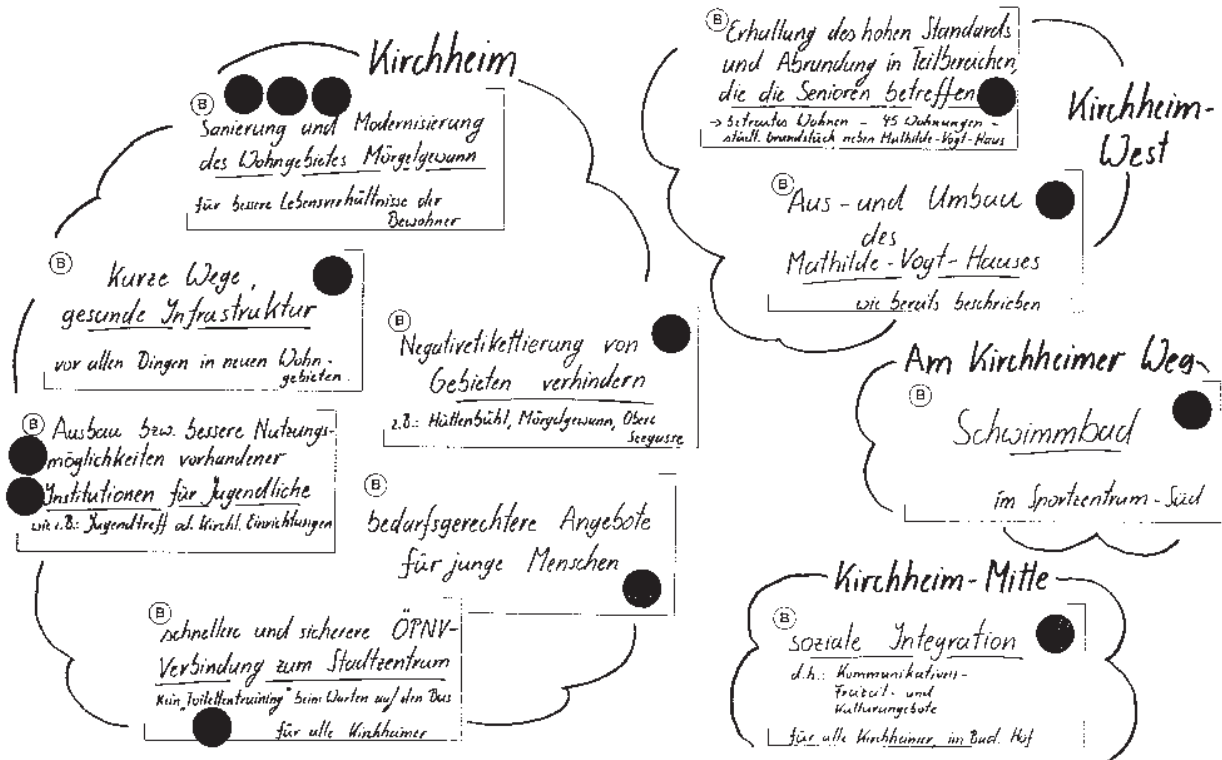 Kirchheim
B
Sanierung und Modernisierung
des Wohngebietes Mörgelgewann
für bessere Lebensverhältnisse der
Bewohner
B
Kurze Wege,
gesunde Infrastruktur
vor allen Dingen in neuen Wohn-
gebieten
B
Negativetikettierung von
Gebieten verhindern
z.B.: Hüttenbühl, Mörgelgewann, Obere
Seegasse
B
Ausbau bzw. bessere Nutzungs-
möglichkeiten vorhandener
Institutionen für Jugendliche
wie z.B.: Jugendtreff od. Kirchl. Einrichtungen
B
bedarfsgerechtere Angebote
für junge Menschen
B
schnellere und sicherere ÖPNV-
Verbindung zum Stadtzentrum
Kein "Toilettentraining" beim Warten auf den Bus
für alle Kirchheimer
Kirchheim-
West
B
Erhaltung des hohen Standards
und Abrundung in Teilbereichen,
die die Senioren betreffen
→ betreutes Wohnen - 45 Wohnungen -
städt. Grundstück neben Mathilde-Vogt-Haus
B
Aus- und Umbau
des
Mathilde-Vogt-Hauses
wie bereits beschrieben
Am Kirchheimer Weg
B
Schwimmbad
im Sportzentrum-Süd
Kirchheim-Mitte
B
soziale Integration
d.h.: Kommunikations-
Freizeit- und
Kulturangebote
für alle Kirchheimer, im Bad. Hof